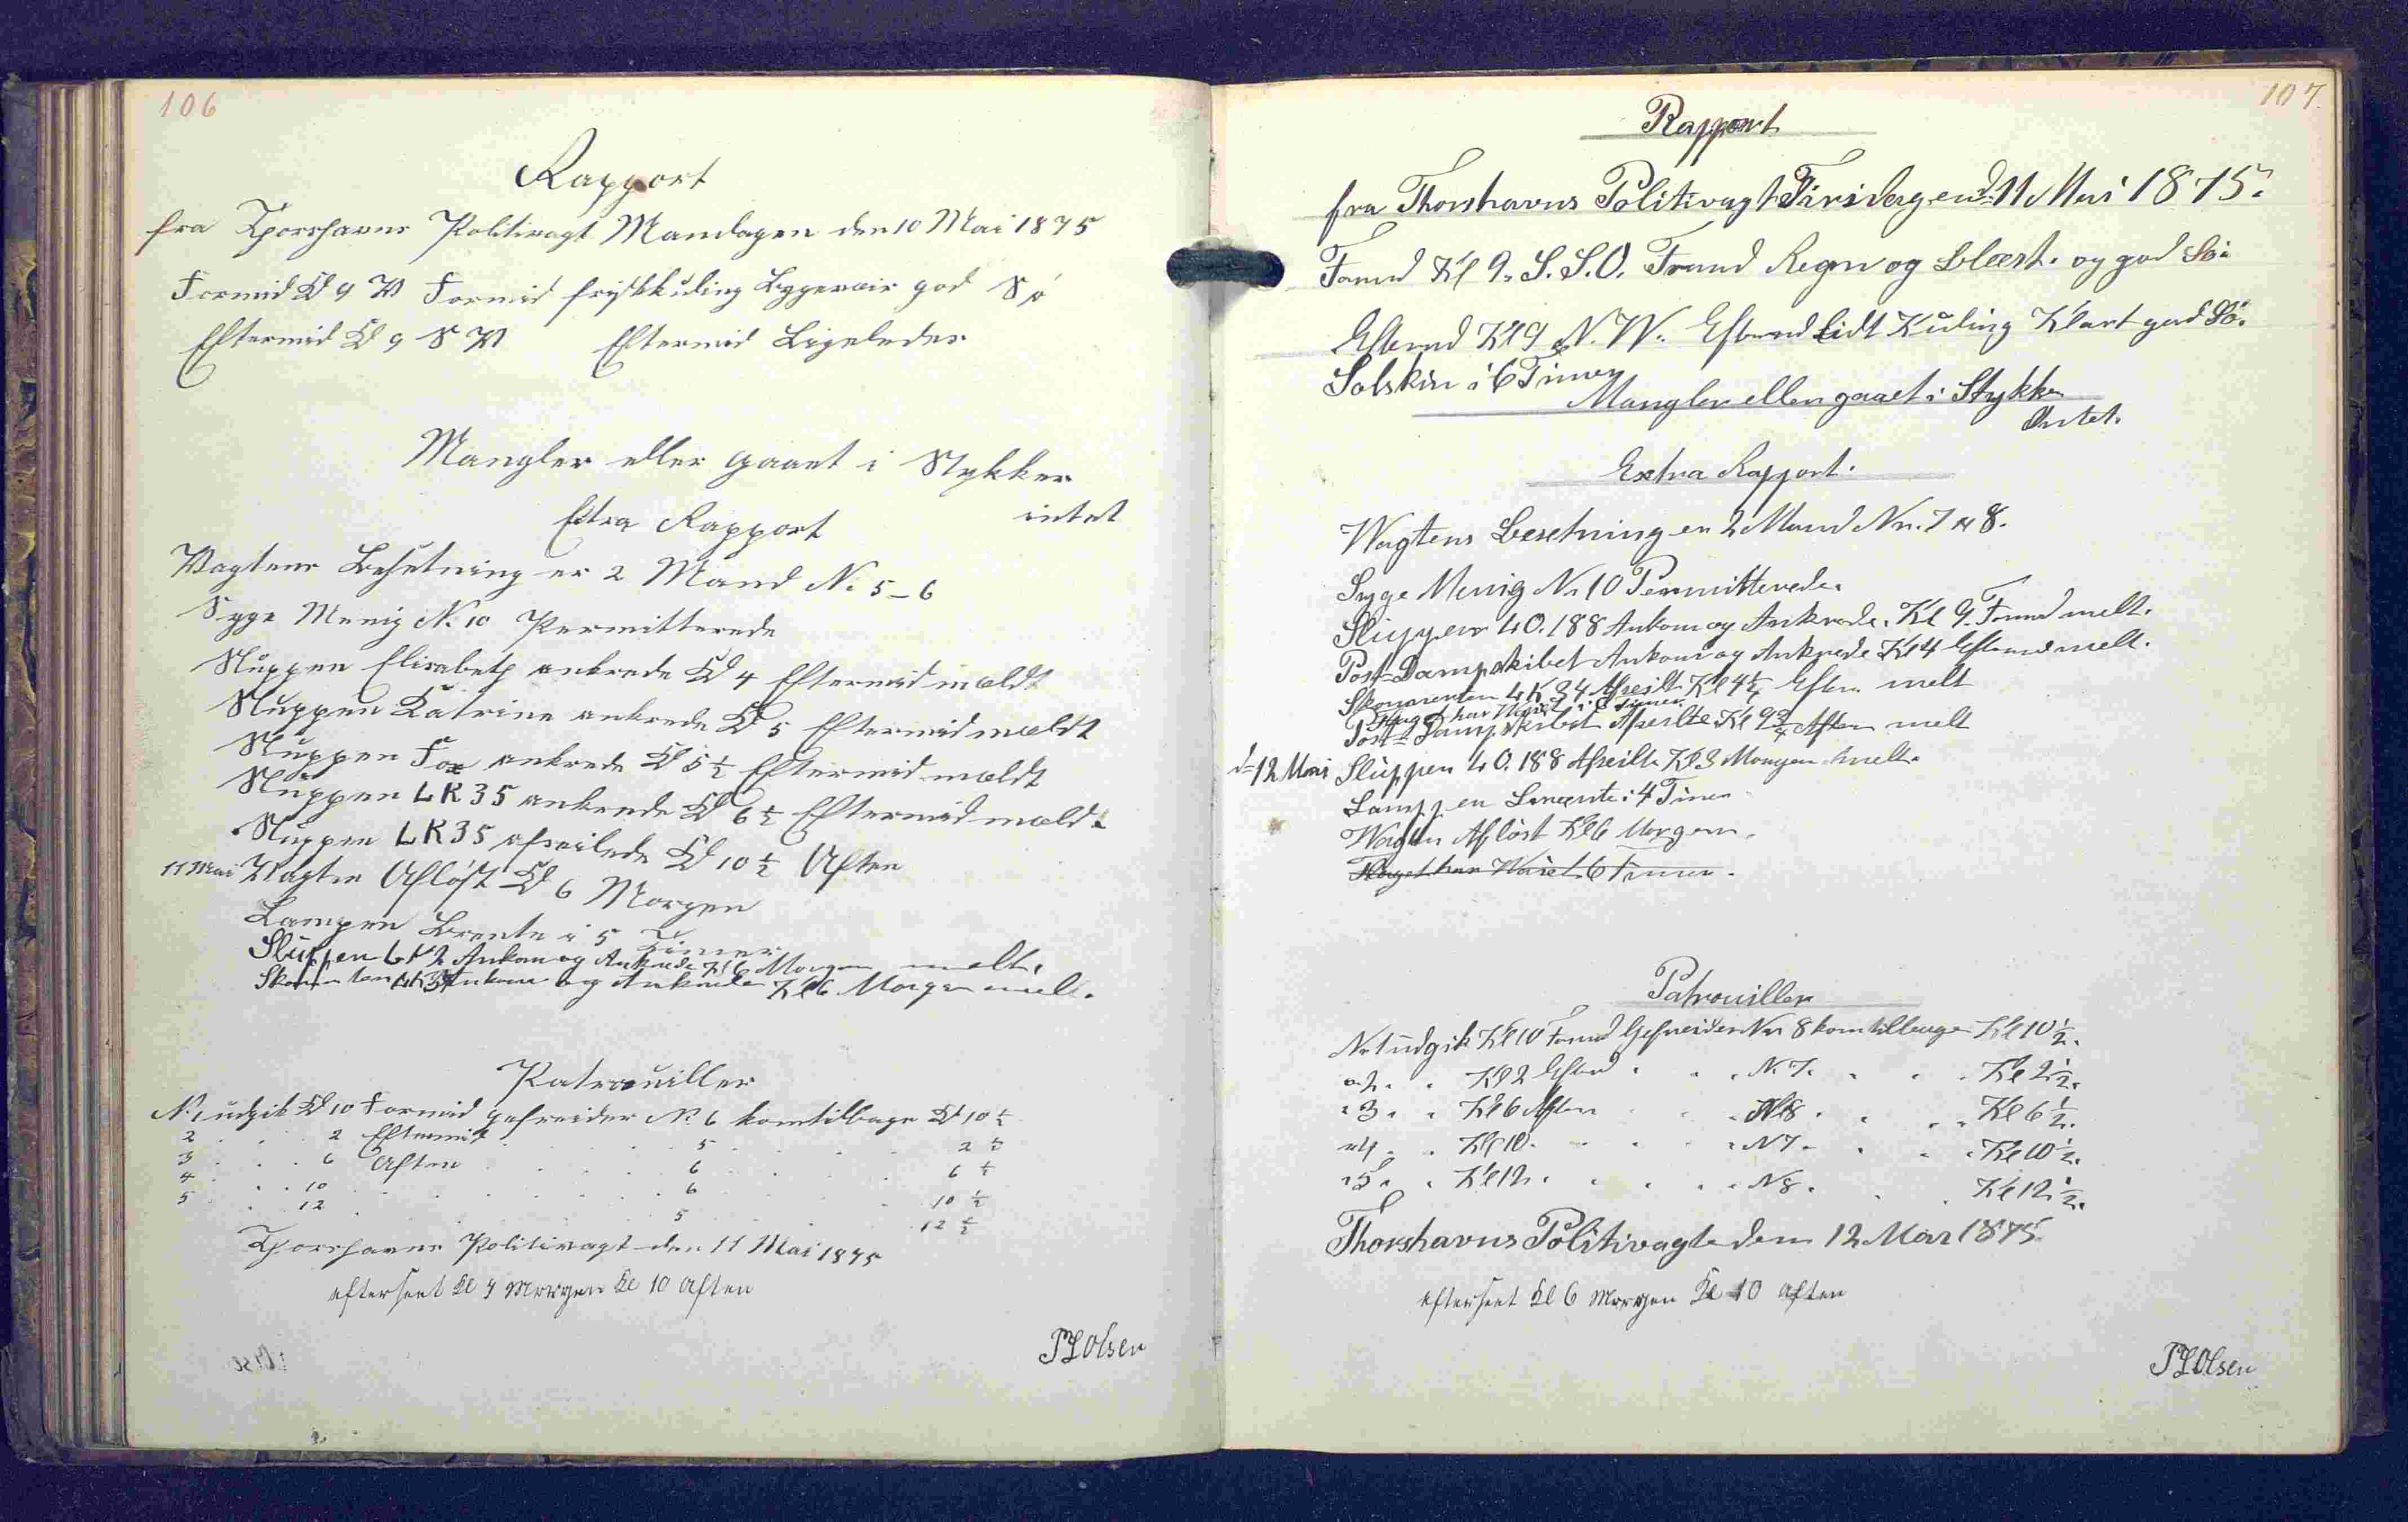 106
Rapport
fra Thorshavns Politivagt Mandagen den 10 Mai 1875
Formid Kl 9 W Formid frisk kuling Bygeveir god Sø
Eftermid Kl 9 S W Eftermid Ligeledes
Mangler eller gaaet i Stykker
intet
Extra Rapport
Vagtens Besetning er 2 Mand No 5-6
Syge Menig No 10 Permitterede
Sluppen Elisabeth ankrede Kl 4 Eftermid meldt
Sluppen Katrine ankrede Kl 5 Eftermid meldt
Sluppen Fox ankrede Kl 5½ Eftermid meldt
Sluppen LK 35 ankrede Kl 6½ Eftermid meldt
Sluppen LK 35 afseilede Kl 10½ Aften
11 Mai Vagten Afløst Kl 6 Morgen
Lampen Brente i 5 Timer
Sluppen Ankom og Ankrede Kl 6 Morgen melt.
Ankom og Ankrede Kl 6 Morgen melt.
Patrouiller
No 1 udgik Kl 10 Formid gefreider No 6 kom tilbage Kl 10½
2 . . . 2 Eftermid . . . 5 . . . 2½
3 . . . 6 Aften . . . 6 . . . 6½
4 . . . 10 . . . 6 . . . 10½
5 . . . 12 . . . 5 . . . 12½
Thorshavns Politivagt den 11 Mai 1875
efterseet Kl 4 Morgen Kl 10 Aften
Olsen
107.
Rapport
fra Thorshavns Politivagt Tirsdagen d. 11 Mai 1875.
Formd Kl 9. S.S.O. Formd Regn og Blæst. og god Sö.
Eftmd Kl 9 N.W. Eftmd lidt Kuling Klart god Sö.
Solskin i 6 Timer
Mangler eller gaaet i Stykker
Intet.
Extra Rapport.
Wagtens Besetning er 2 Mand Nr. 7 & 8.
Syge Menig Nr 10 Permitterede.
Sluppen LO. 188 Ankom og Ankrede. Kl 9. Formd melt.
Post-Dampskibet Ankom og Ankrede Kl 4 Eftermd melt.
Skonnerten LK 34 Afseilte Kl 4½ Eftm. melt
Flaget har Waiet i 6 Timer
Post-Dampskibet Afseilte Kl 9¾ Aften melt
d. 12 Mai Sluppen LO. 188 Afseilte Kl 3 Morgen melt.
Lampen Brænte i 4 Timer
Wagten Aflöst Kl 6 Morgen.
Flaget har Waiet 6 Timer.
Patrouiller
Nr 1 udgik Kl 10 Formd Gefreider Nr 8 kom tilbage Kl 10½.
" 2. . Kl 2 Eftmd . . . N. 7. . . . Kl 2½.
" 3. . Kl 6 Aften . . . N 8 . . . Kl 6½.
" 4 . . Kl 10. . . . N 7. . . . Kl 10½.
" 5 . . Kl 12. . . . N 8. . . Kl 12½.
Thorshavns Politivagt dem 12 Mai 1875
efterseet Kl 6 Morgen Kl 10 Aften
Olsen